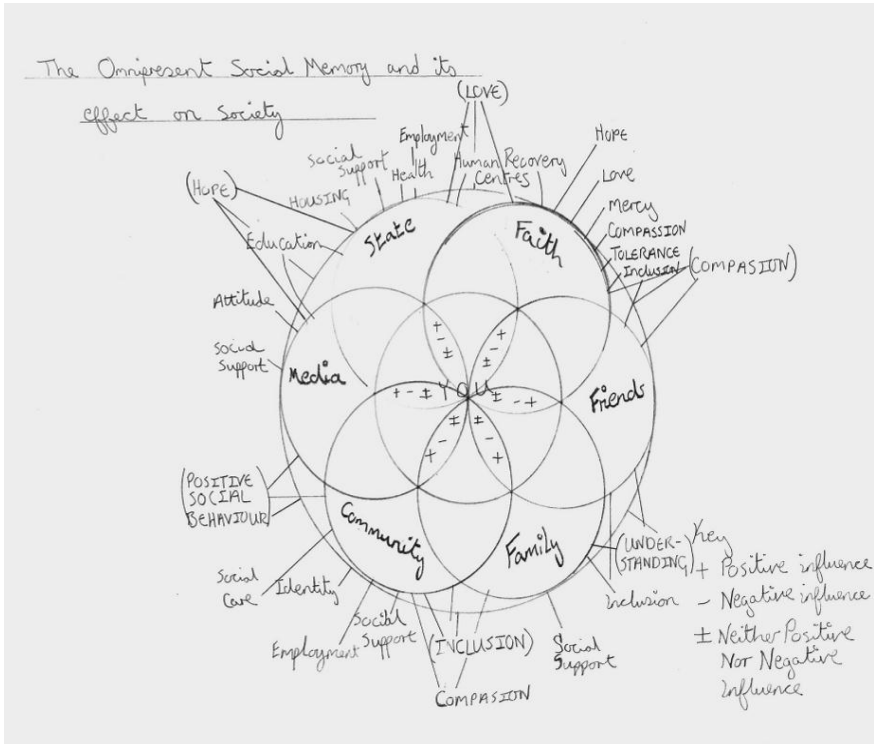 The Omnipresent Social Memory and its
effect on Society
(LOVE)
Employment
Social
Support
Health
Human Recovery
Centres
HOPE
Love
Mercy
COMPASSION
TOLERANCE
Inclusion
(COMPASION)
(HOPE)
HOUSING
Education
Attitude
Social
Support
State
Faith
Media
Friends
Community
Family
+ - ±
+ - ±
+ - ± YOU ± - +
± - +
± - +
(POSITIVE
SOCIAL
BEHAVIOUR)
Social
Care
Identity
Employment
Social
Support
(INCLUSION)
COMPASION
Social
Support
Inclusion
(UNDER-
STANDING)
Key
+ Positive influence
- Negative influence
± Neither Positive
Nor Negative
Influence